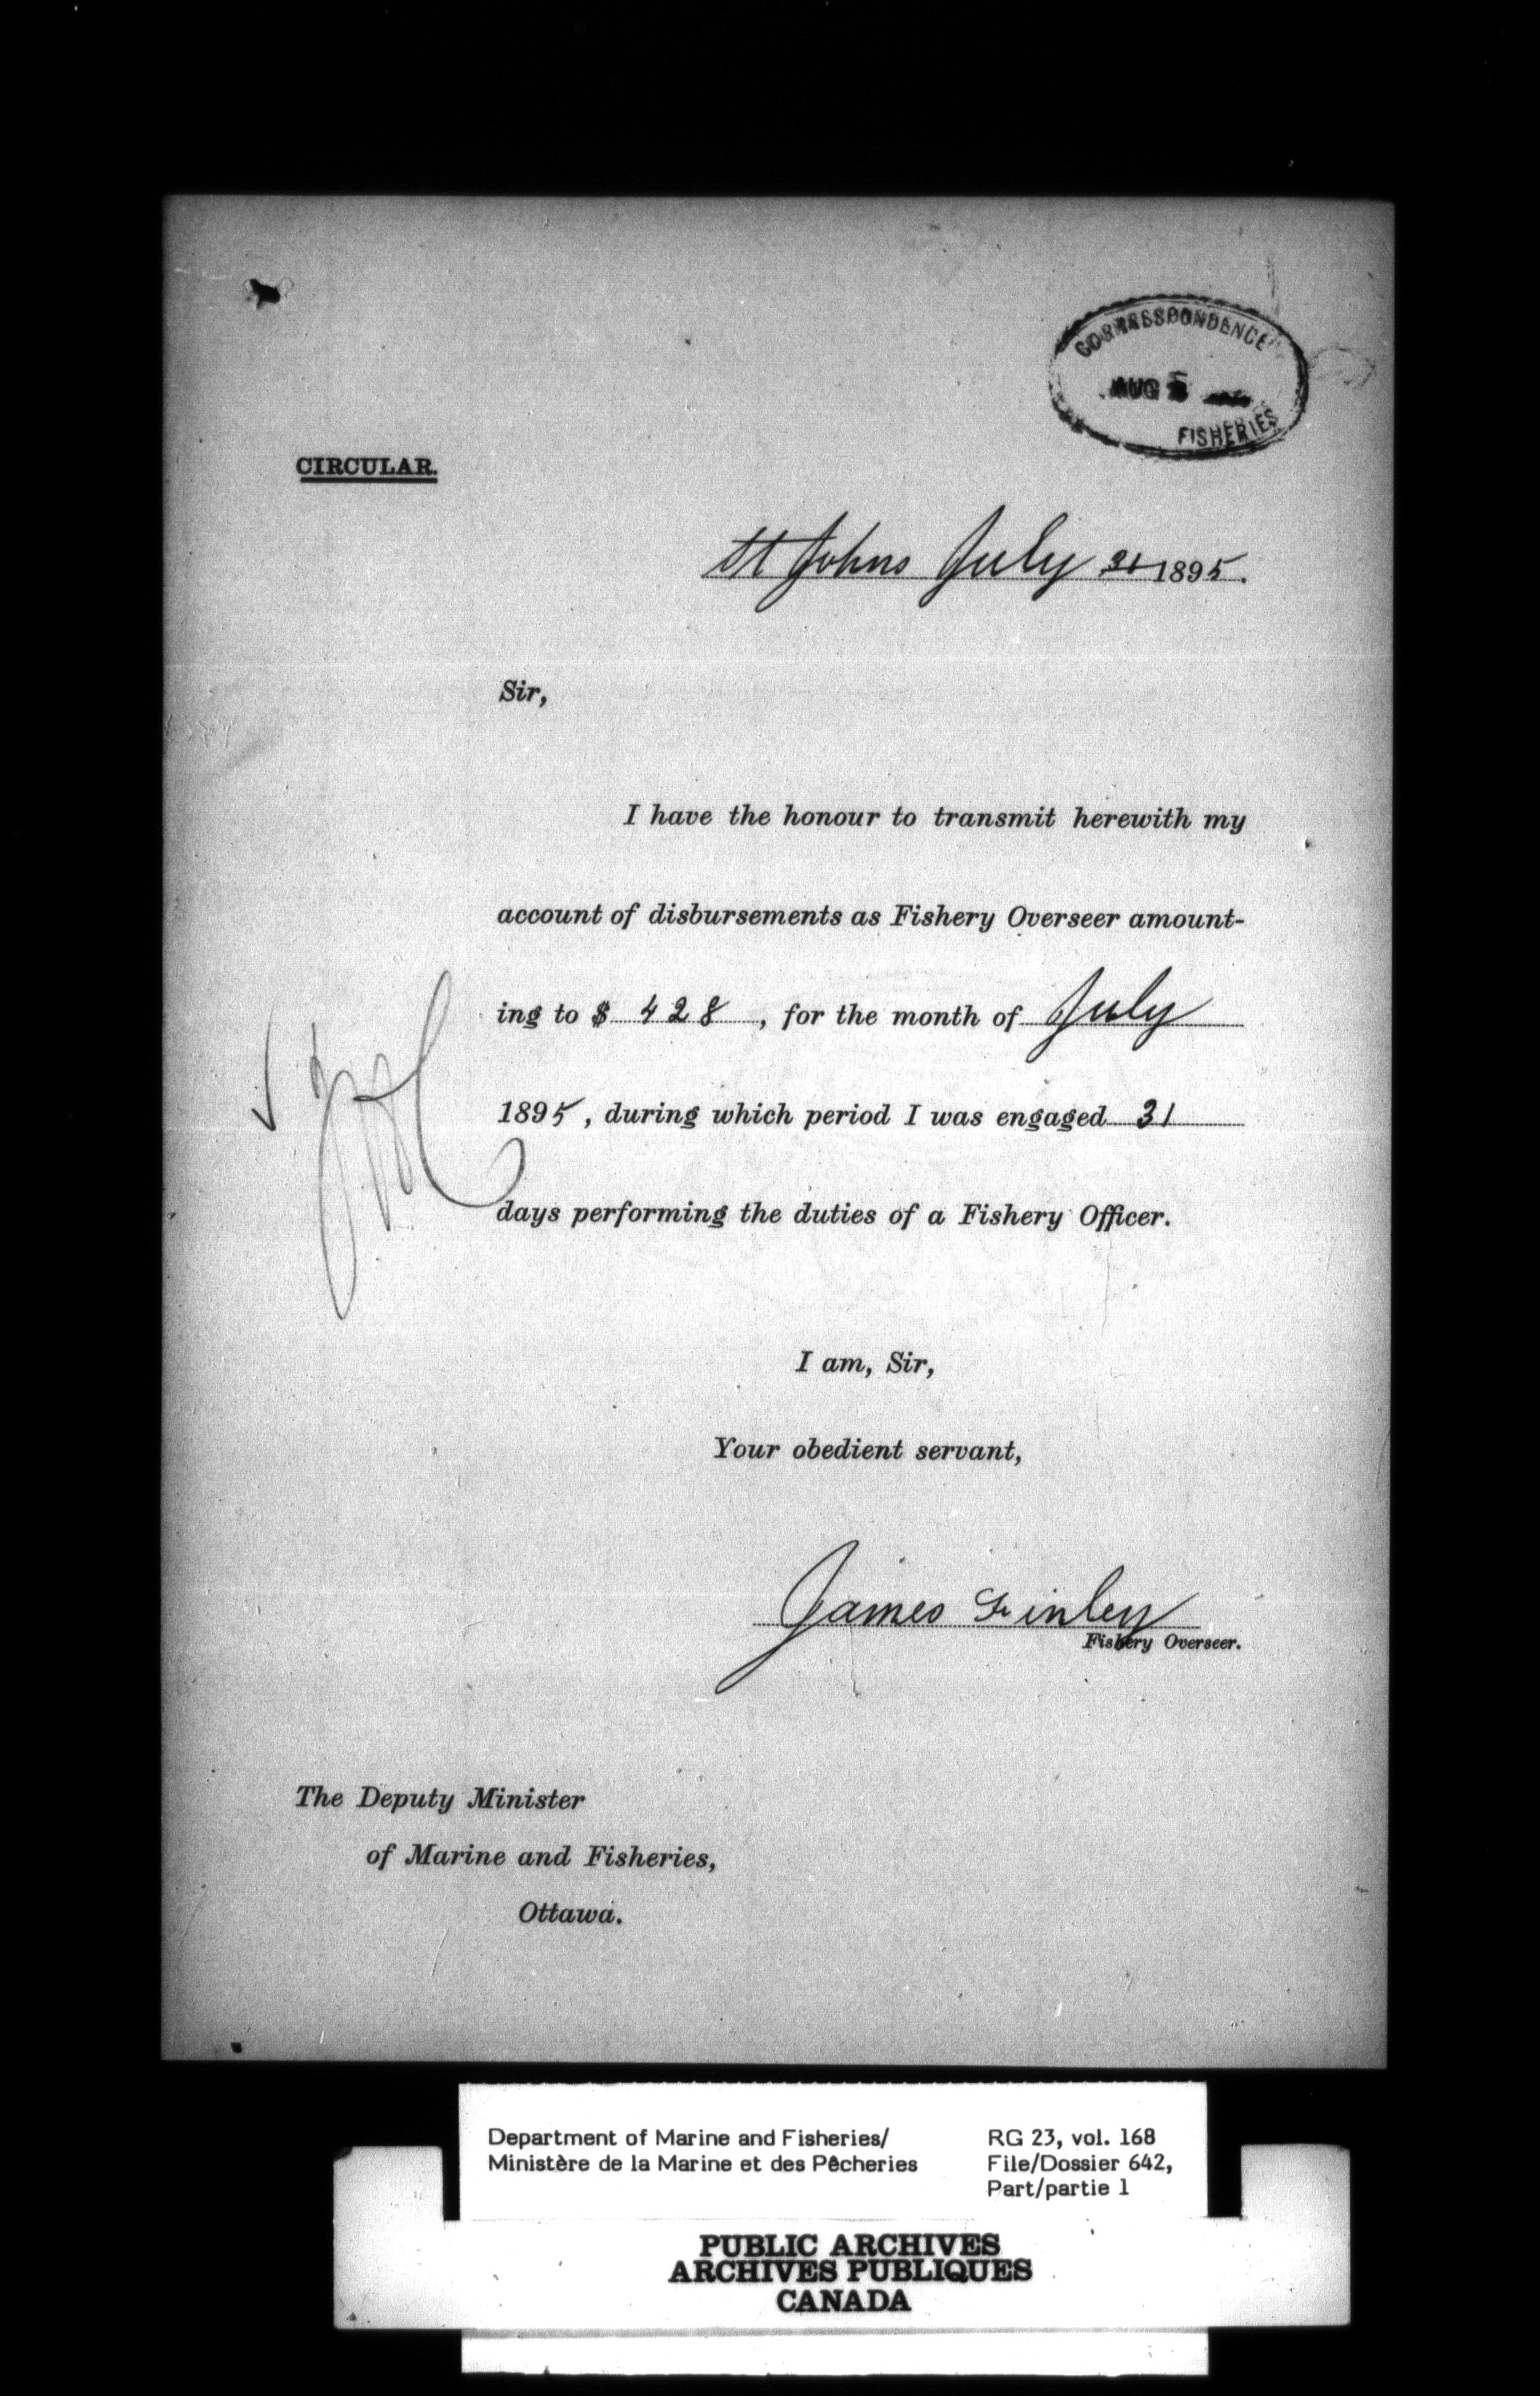 CORRESPONDENCE
AUG 5
FISHERIES
CIRCULAR.
St Johns July 31 1895.
Sir,
I have the honour to transmit herewith my
account of disbursements as Fishery Overseer amount-
ing to $ 4 28, for the month of July
1895, during which period I was engaged 31
days performing the duties of a Fishery Officer.
I am, Sir,
Your obedient servant,
James Finley
Fishery Overseer.
The Deputy Minister
of Marine and Fisheries,
Ottawa.
Department of Marine and Fisheries/
Ministère de la Marine et des Pêcheries
RG 23, vol. 168
File/Dossier 642,
Part/partie 1
PUBLIC ARCHIVES
ARCHIVES PUBLIQUES
CANADA